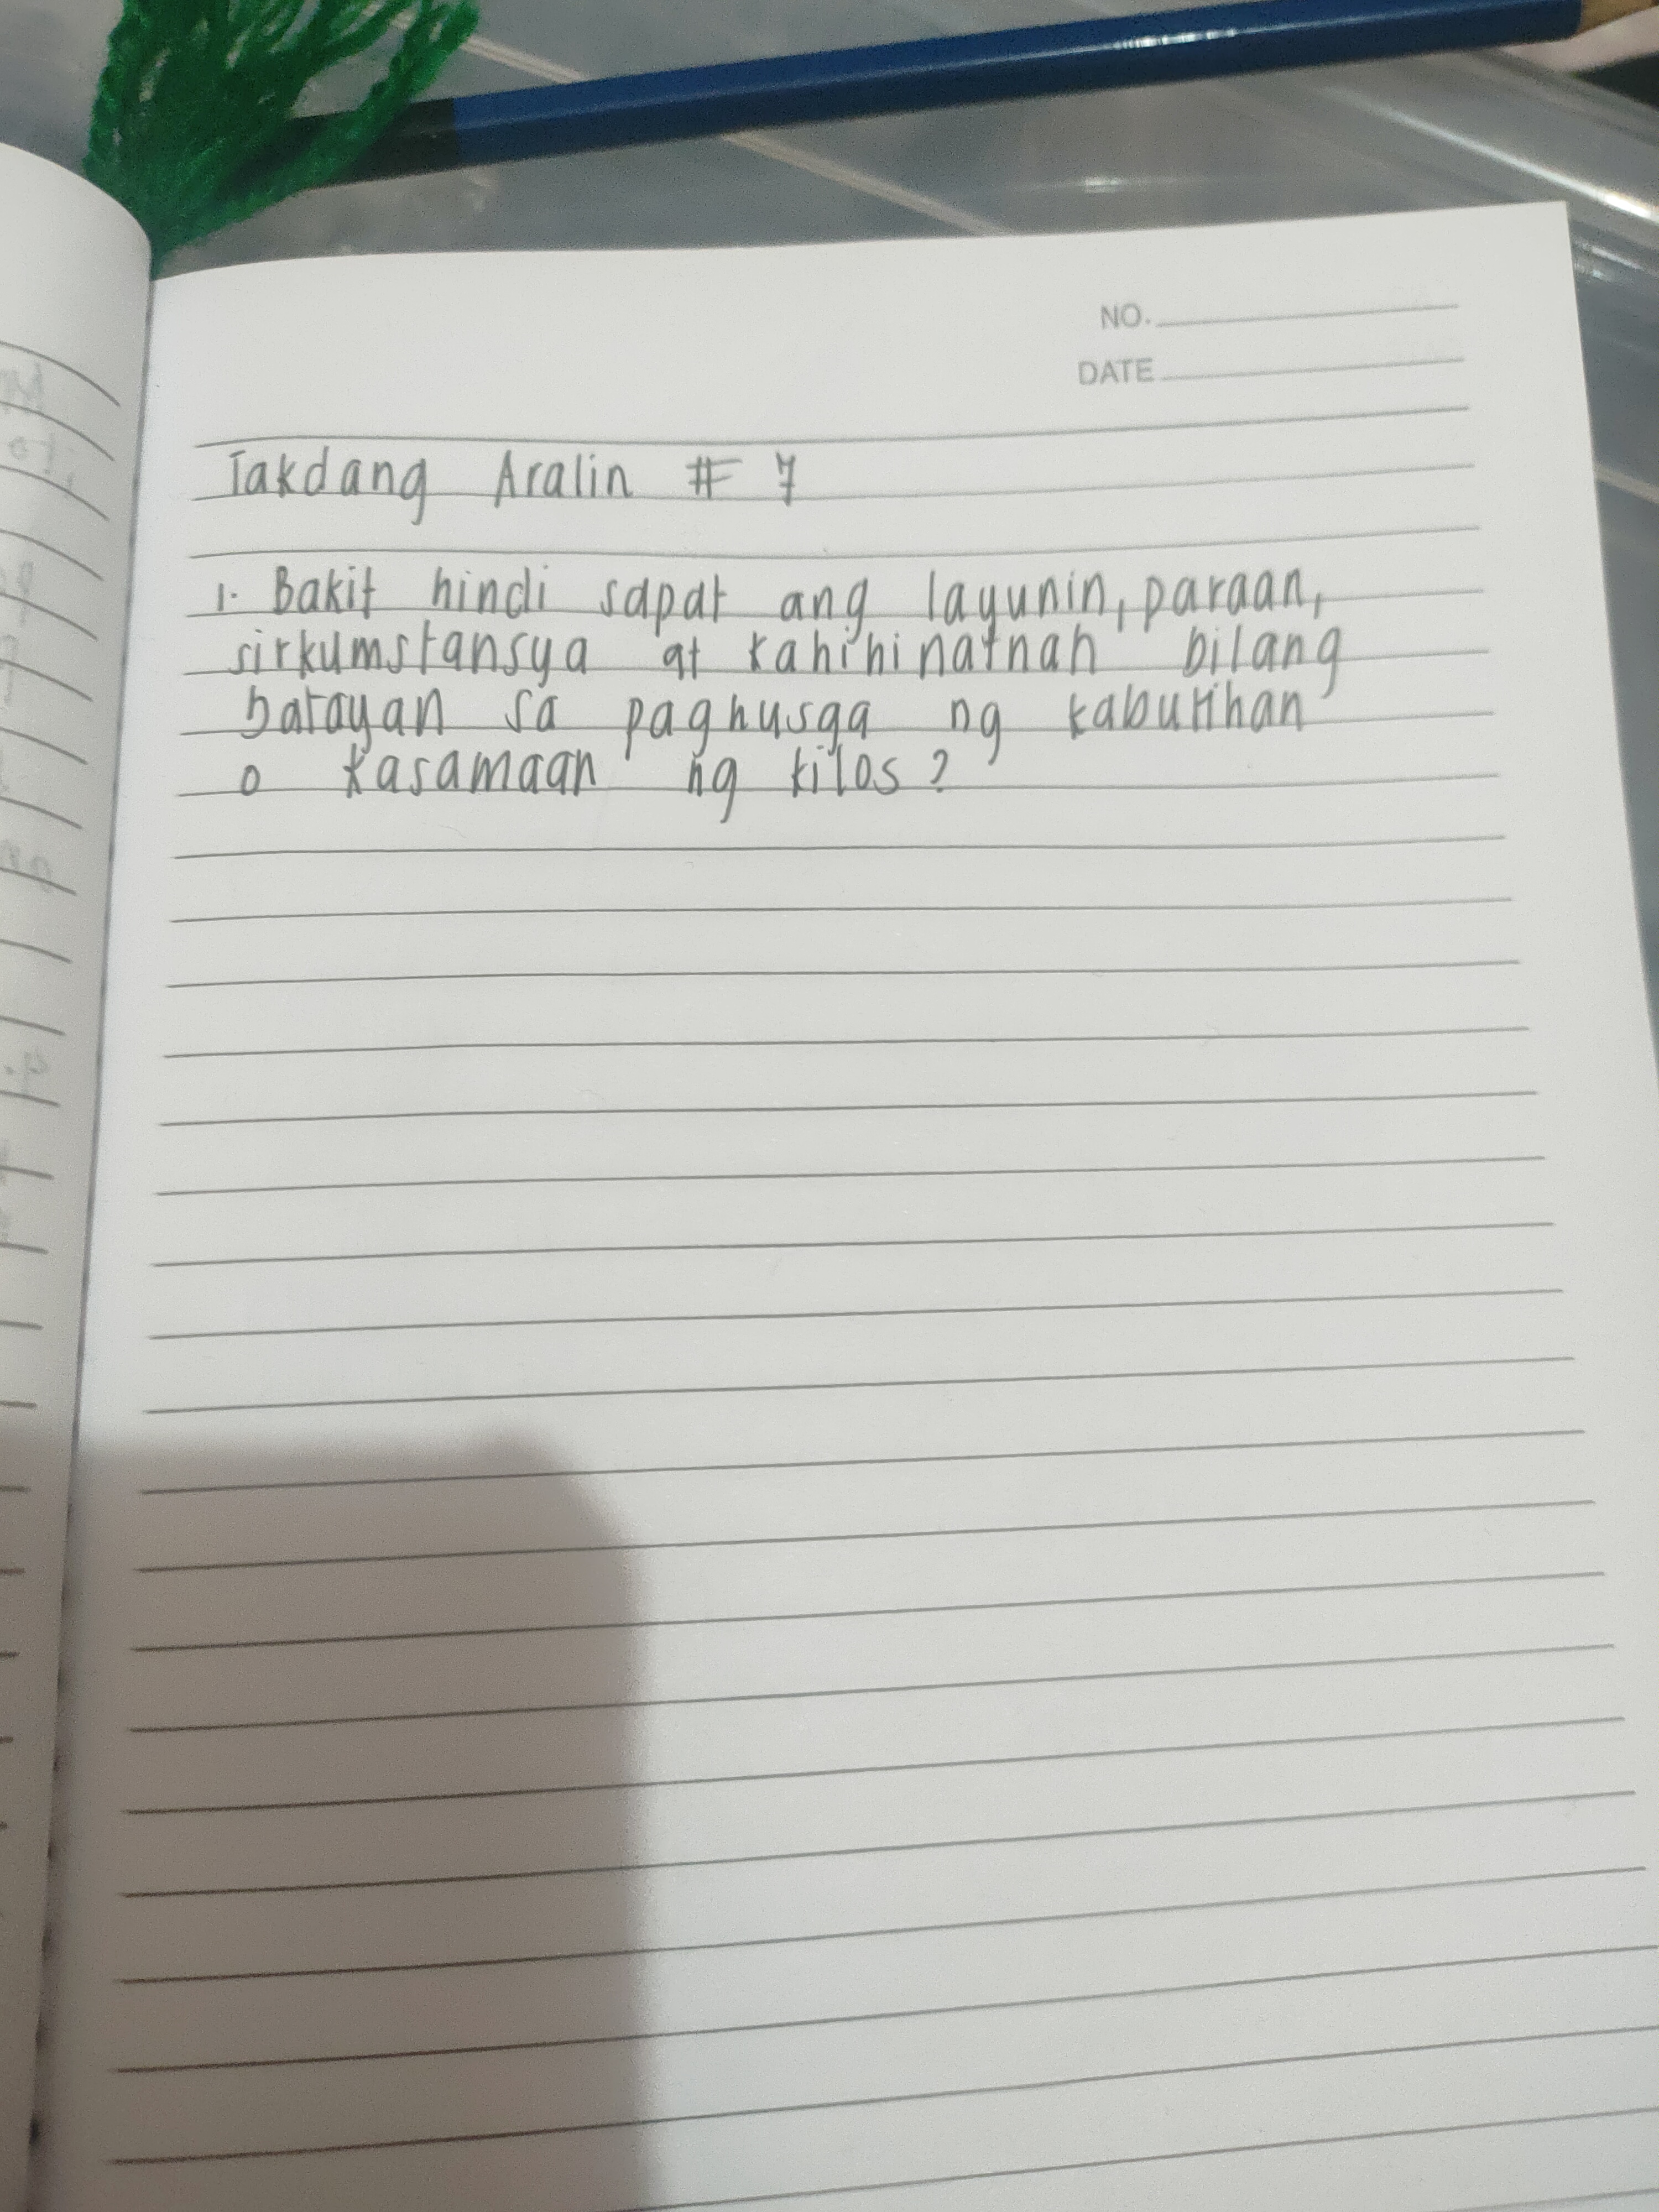 NO.
DATE
Takdang Aralin # 7
1. Bakit hindi sapat ang layunin, paraan,
sirkumstansya at kahihinatnan bilang
batayan sa paghusga ng kabutihan
o kasamaan ng kilos?